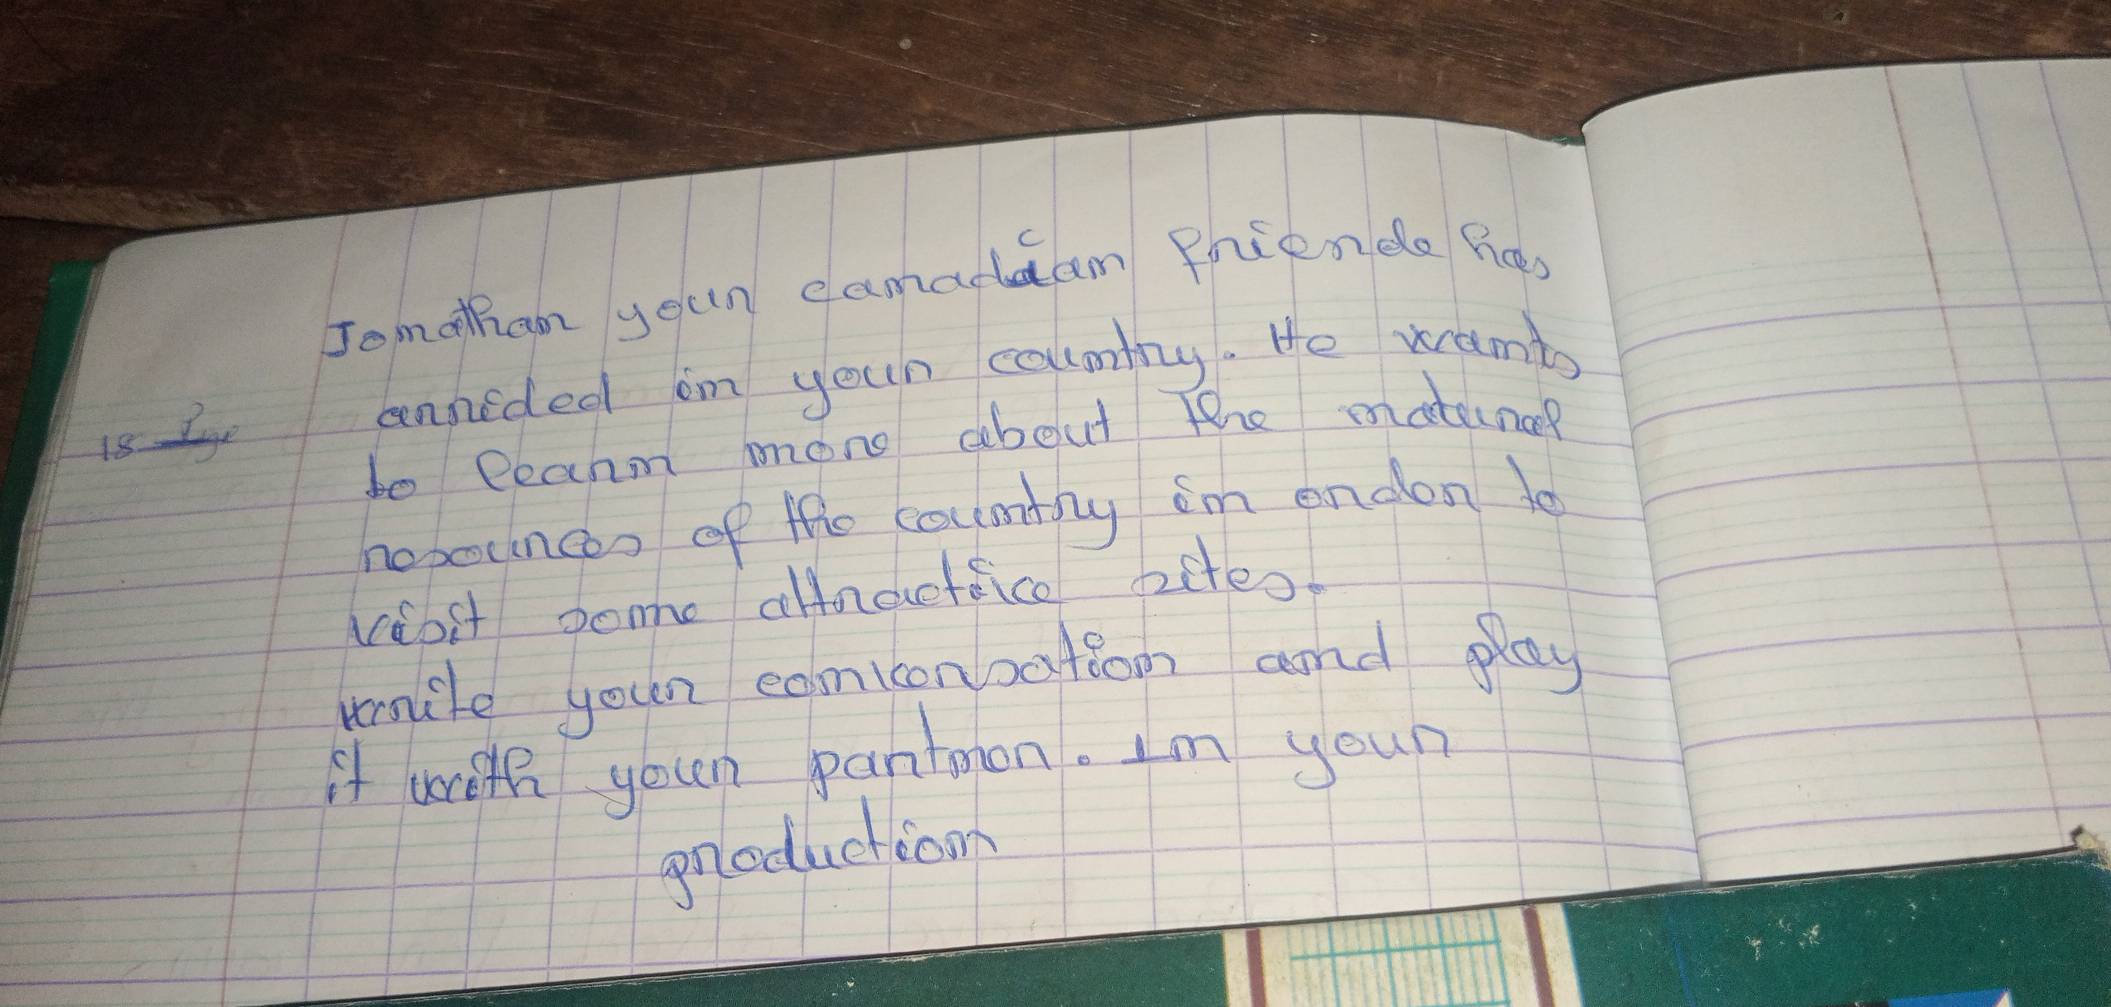 Jonathan your canadian friende has
arrided in your country. He wants
to learn more about the natural
resources of the country in ordor to
visit some attractice sites.
write your conversation and play
it with your partnor. In your
production
18